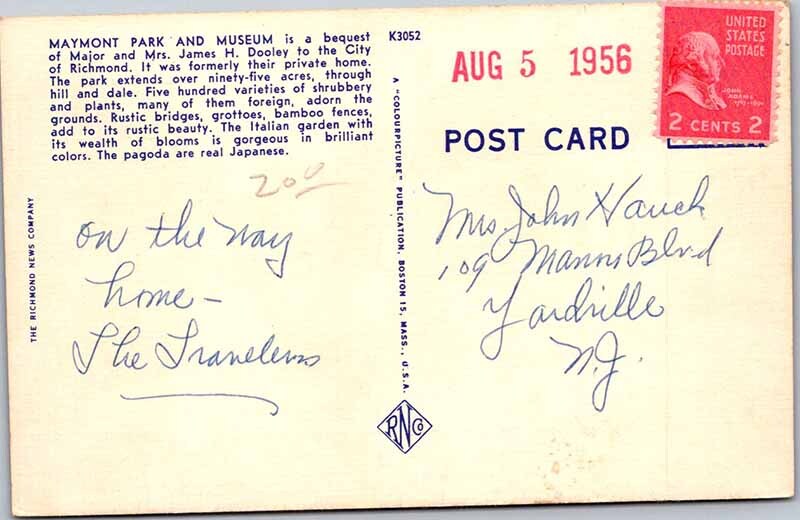 MAYMONT PARK AND MUSEUM is a bequest
of Major and Mrs. James H. Dooley to the City
of Richmond. It was formerly their private home.
The park extends over ninety-five acres, through
hill and dale. Five hundred varieties of shrubbery
and plants, many of them foreign, adorn the
grounds. Rustic bridges, grottoes, bamboo fences,
add to its rustic beauty. The Italian garden with
its wealth of blooms is gorgeous in brilliant
colors. The pagoda are real Japanese.
200
on the way
home –
The Travelers
THE RICHMOND NEWS COMPANY
K3052
A "COLOURPICTURE" PUBLICATION, BOSTON 15, MASS., U.S.A.
RNCo
AUG 5 1956
UNITED
STATES
POSTAGE
JOHN
ADAMS
2 CENTS 2
POST CARD
Mrs. John Hauck
109 Manns Blvd
Yardville
N.J.